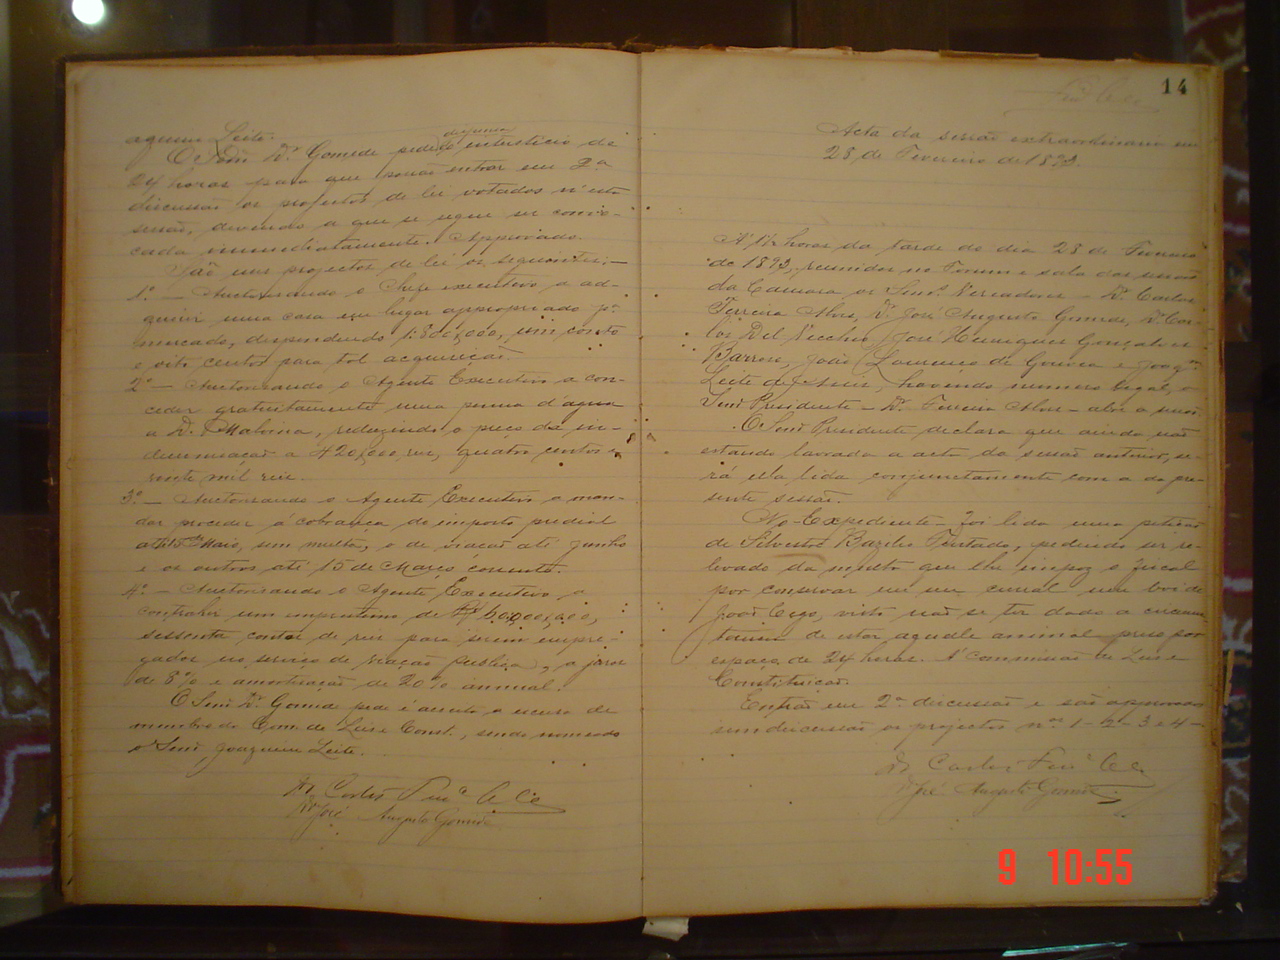 aquim Leite.
O Senr. Dr. Gomide pede dispensa intersticio de
24 horas para que possão entrar em 2ª
discussão os projectos de lei votados n'esta
sessão, devendo a que se segue ser convo-
cada immediatamente. Approvado.
São uns projectos de lei os seguintes:—
1º — Auctorisando o Chefe executivo a ad-
quirir uma casa em lugar appropriado pª
mercado, despendendo 1:800,000, um conto
e oito centos para tal acquisição.
2º — Auctorisando o Agente Executivo a con-
ceder gratuitamente uma penna d'agua
a D. Malvina, reduzindo o preço da in-
demnisação a 420,000 reis, quatro centos e
vinte mil reis.
3º — Auctorisando o Agente Executivo a man-
dar proceder á cobrança do imposto predial
até 15 Maio, sem multa, o de viação até Junho
e os outros até 15 de Março corrente.
4º — Auctorisando o Agente Executivo a
contrahir um emprestimo de 60,000,000,
sessenta contos de reis para serem empre-
gados no serviço de viação publica, a juros
de 8% e amortisação de 20% annual.
O Senr. Dr. Gomide pede e é acceito a escusa de
membro da Com. de Leis e Const., sendo nomeado
o Senr. Joaquim Leite.
Dr Carlos Ferrª
Dr José Augusto Gomide
14
Acta da sessão extraordinaria em
28 de Fevereiro de 1893.
A's horas da tarde do dia 28 de Fevereiro
de 1893, reunidos no Forum e sala das sessões
da Camara os Senrs. Vereadores — Dr. Carlos
Ferreira Alves, Dr. José Augusto Gomide, Dr. Car-
los Del Vecchio, José Henriques Gonçalves
Barroso, João Lourenço de Gouvea e Joaqm.
Leite de, havendo numero legal, o
Senr. Presidente — Dr. Ferreira Alves — abre a sessão.
O Senr. Presidente declara que ainda não
estando lavrada a acta da sessão anterior, se-
rá ella lida conjunctamente com a da pre-
sente sessão.
No Expediente — Foi lida uma petição
de Silvestre Bazilio Furtado, pedindo ser re-
levado da multa que lhe impoz o fiscal
por conservar em seu curral um boi de
João Cego, visto não se ter dado a circums-
tancia de estar aquelle animal preso por
espaço de 24 horas. A' Commissão de Leis e
Constituição.
Entrão em 2ª discussão e são approvados
sem discussão os projectos nos. 1-2-3 e 4 —
Dr Carlos Ferrª
Dr José Augusto Gomide
9 10:55